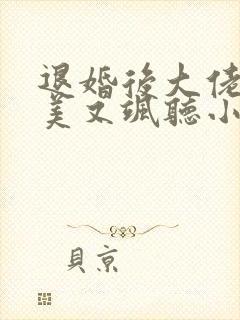 退婚後大佬
美又颯聽小
貝京